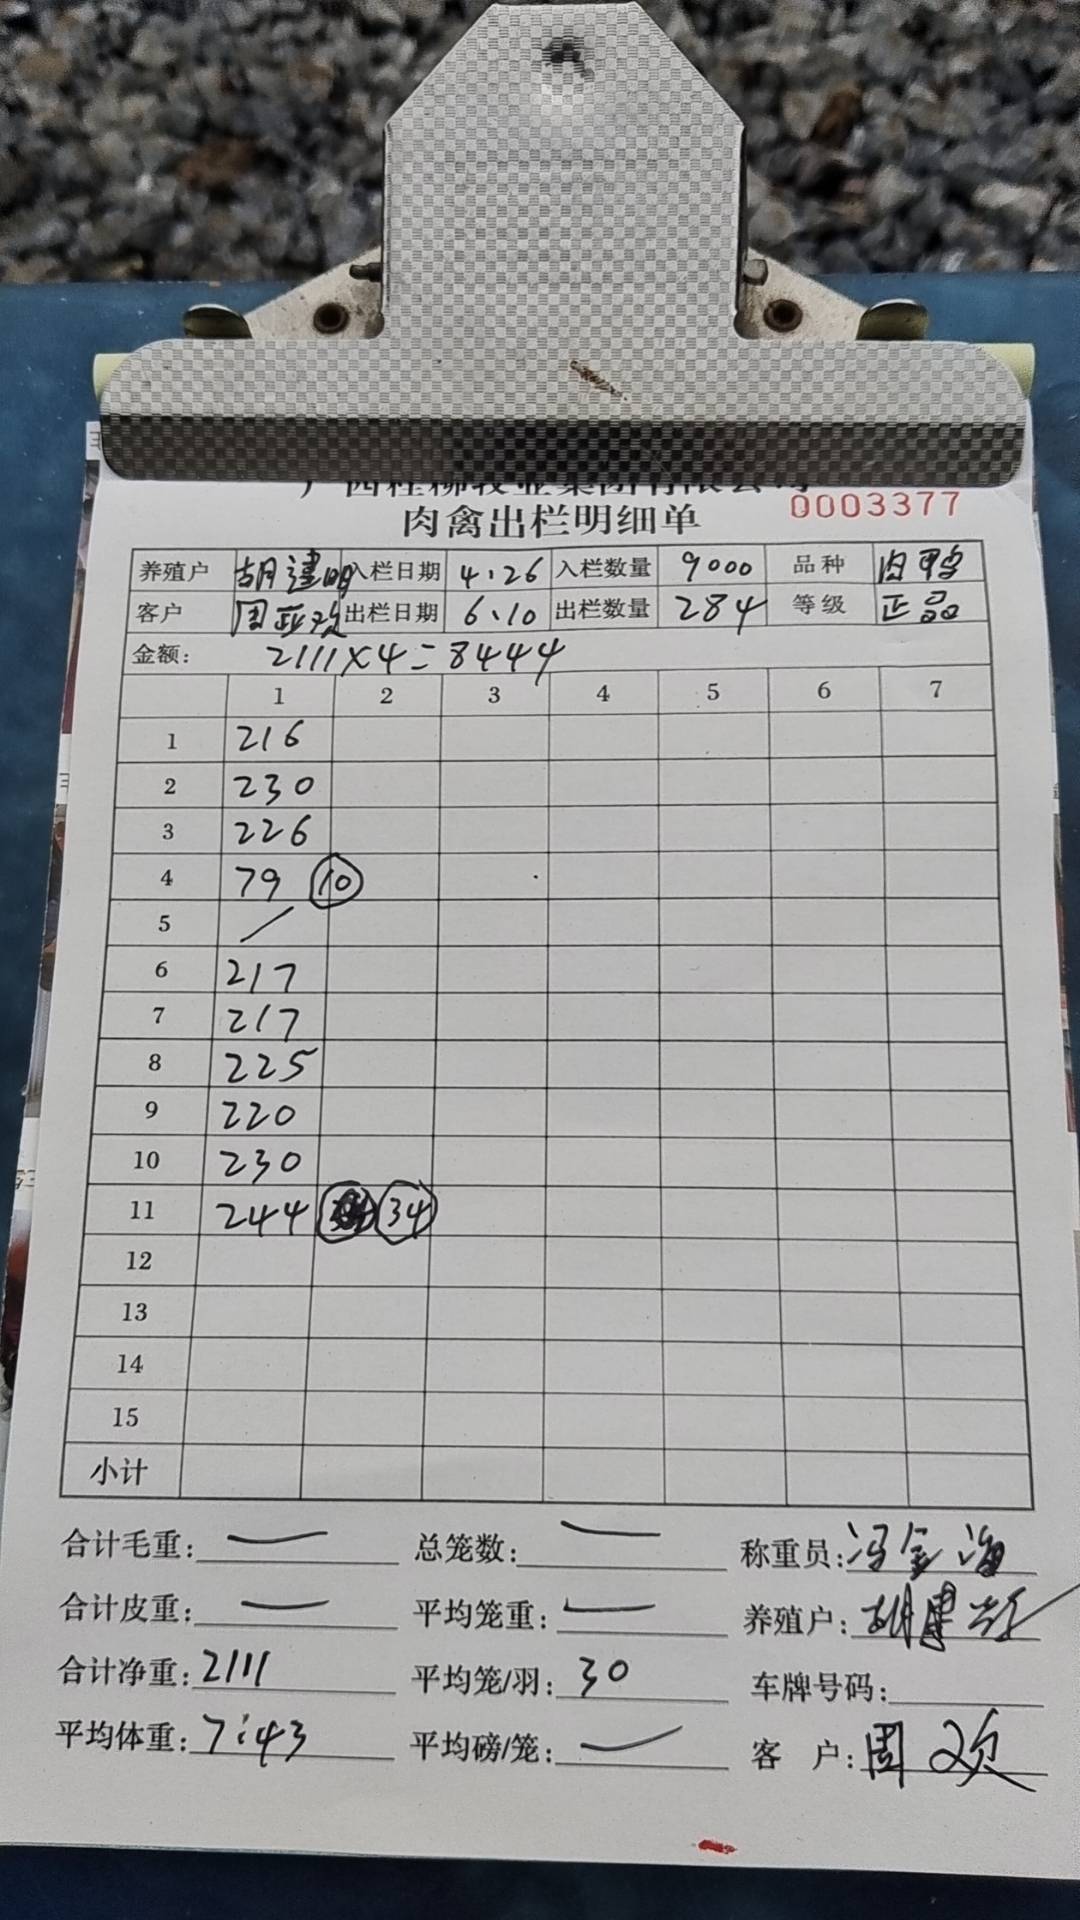 广西桂柳牧业集团有限公司
肉禽出栏明细单 0003377
养殖户 胡建明 入栏日期 4.26 入栏数量 9000 品种 肉鸭
客户 周亚欢 出栏日期 6.10 出栏数量 284 等级 正品
金额: 2111×4=8444
1 2 3 4 5 6 7
1 216
2 230
3 226
4 79 10
5 /
6 217
7 217
8 225
9 220
10 230
11 244 34
12
13
14
15
小计
合计毛重: — 总笼数: — 称重员: 冯金海
合计皮重: — 平均笼重: — 养殖户: 胡建
合计净重: 2111 平均笼/羽: 30 车牌号码:
平均体重: 7:43 平均磅/笼: — 客 户: 周欢